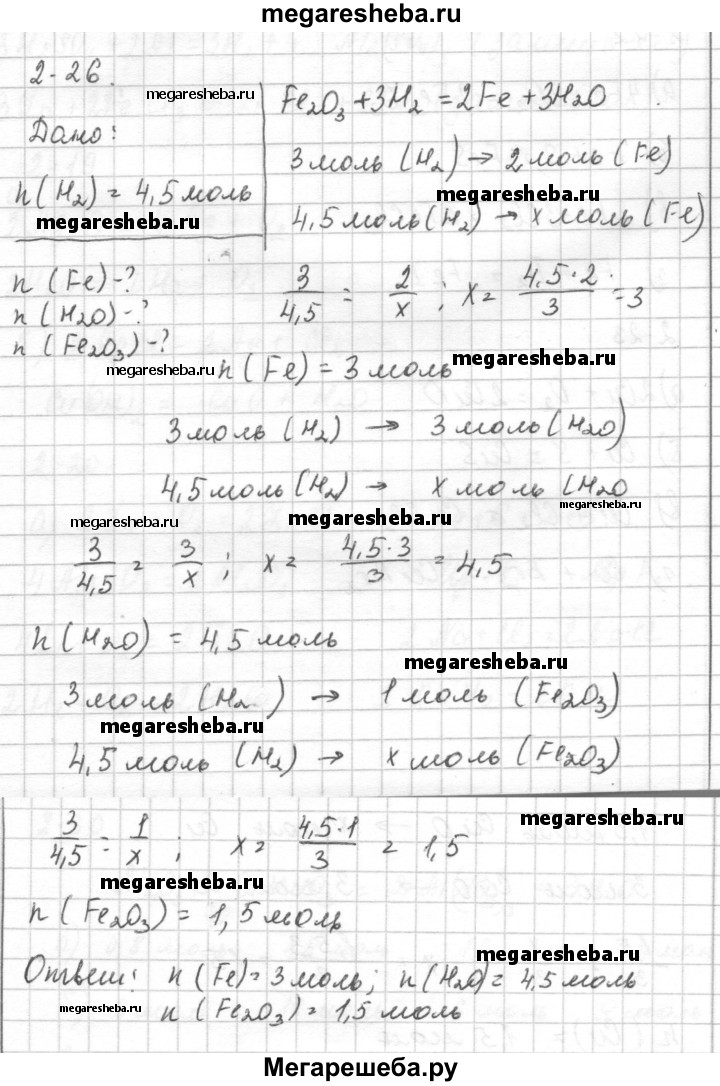 megaresheba.ru
2-26.
Дано:
n(H₂) = 4,5 моль
megaresheba.ru
n (Fe) - ?
n (H₂O) - ?
n (Fe₂O₃) - ?
megaresheba.ru
megaresheba.ru
Fe₂O₃ + 3H₂ = 2Fe + 3H₂O
3 моль (H₂) → 2 моль (Fe)
megaresheba.ru
4,5 моль (H₂) → x моль (Fe)
3/4,5 = 2/x ; x = 4,5·2/3 = 3
megaresheba.ru
n (Fe) = 3 моль
3 моль (H₂) → 3 моль (H₂O)
4,5 моль (H₂) → x моль (H₂O
megaresheba.ru
megaresheba.ru
megaresheba.ru
3/4,5 = 3/x ; x = 4,5·3/3 = 4,5
n (H₂O) = 4,5 моль
megaresheba.ru
3 моль (H₂) → 1 моль (Fe₂O₃)
megaresheba.ru
4,5 моль (H₂) → x моль (Fe₂O₃)
megaresheba.ru
3/4,5 = 1/x ; x = 4,5·1/3 = 1,5
megaresheba.ru
n (Fe₂O₃) = 1,5 моль
megaresheba.ru
Ответ: n (Fe) = 3 моль; n (H₂O) = 4,5 моль
megaresheba.ru
n (Fe₂O₃) = 1,5 моль
Мегарешеба.ру